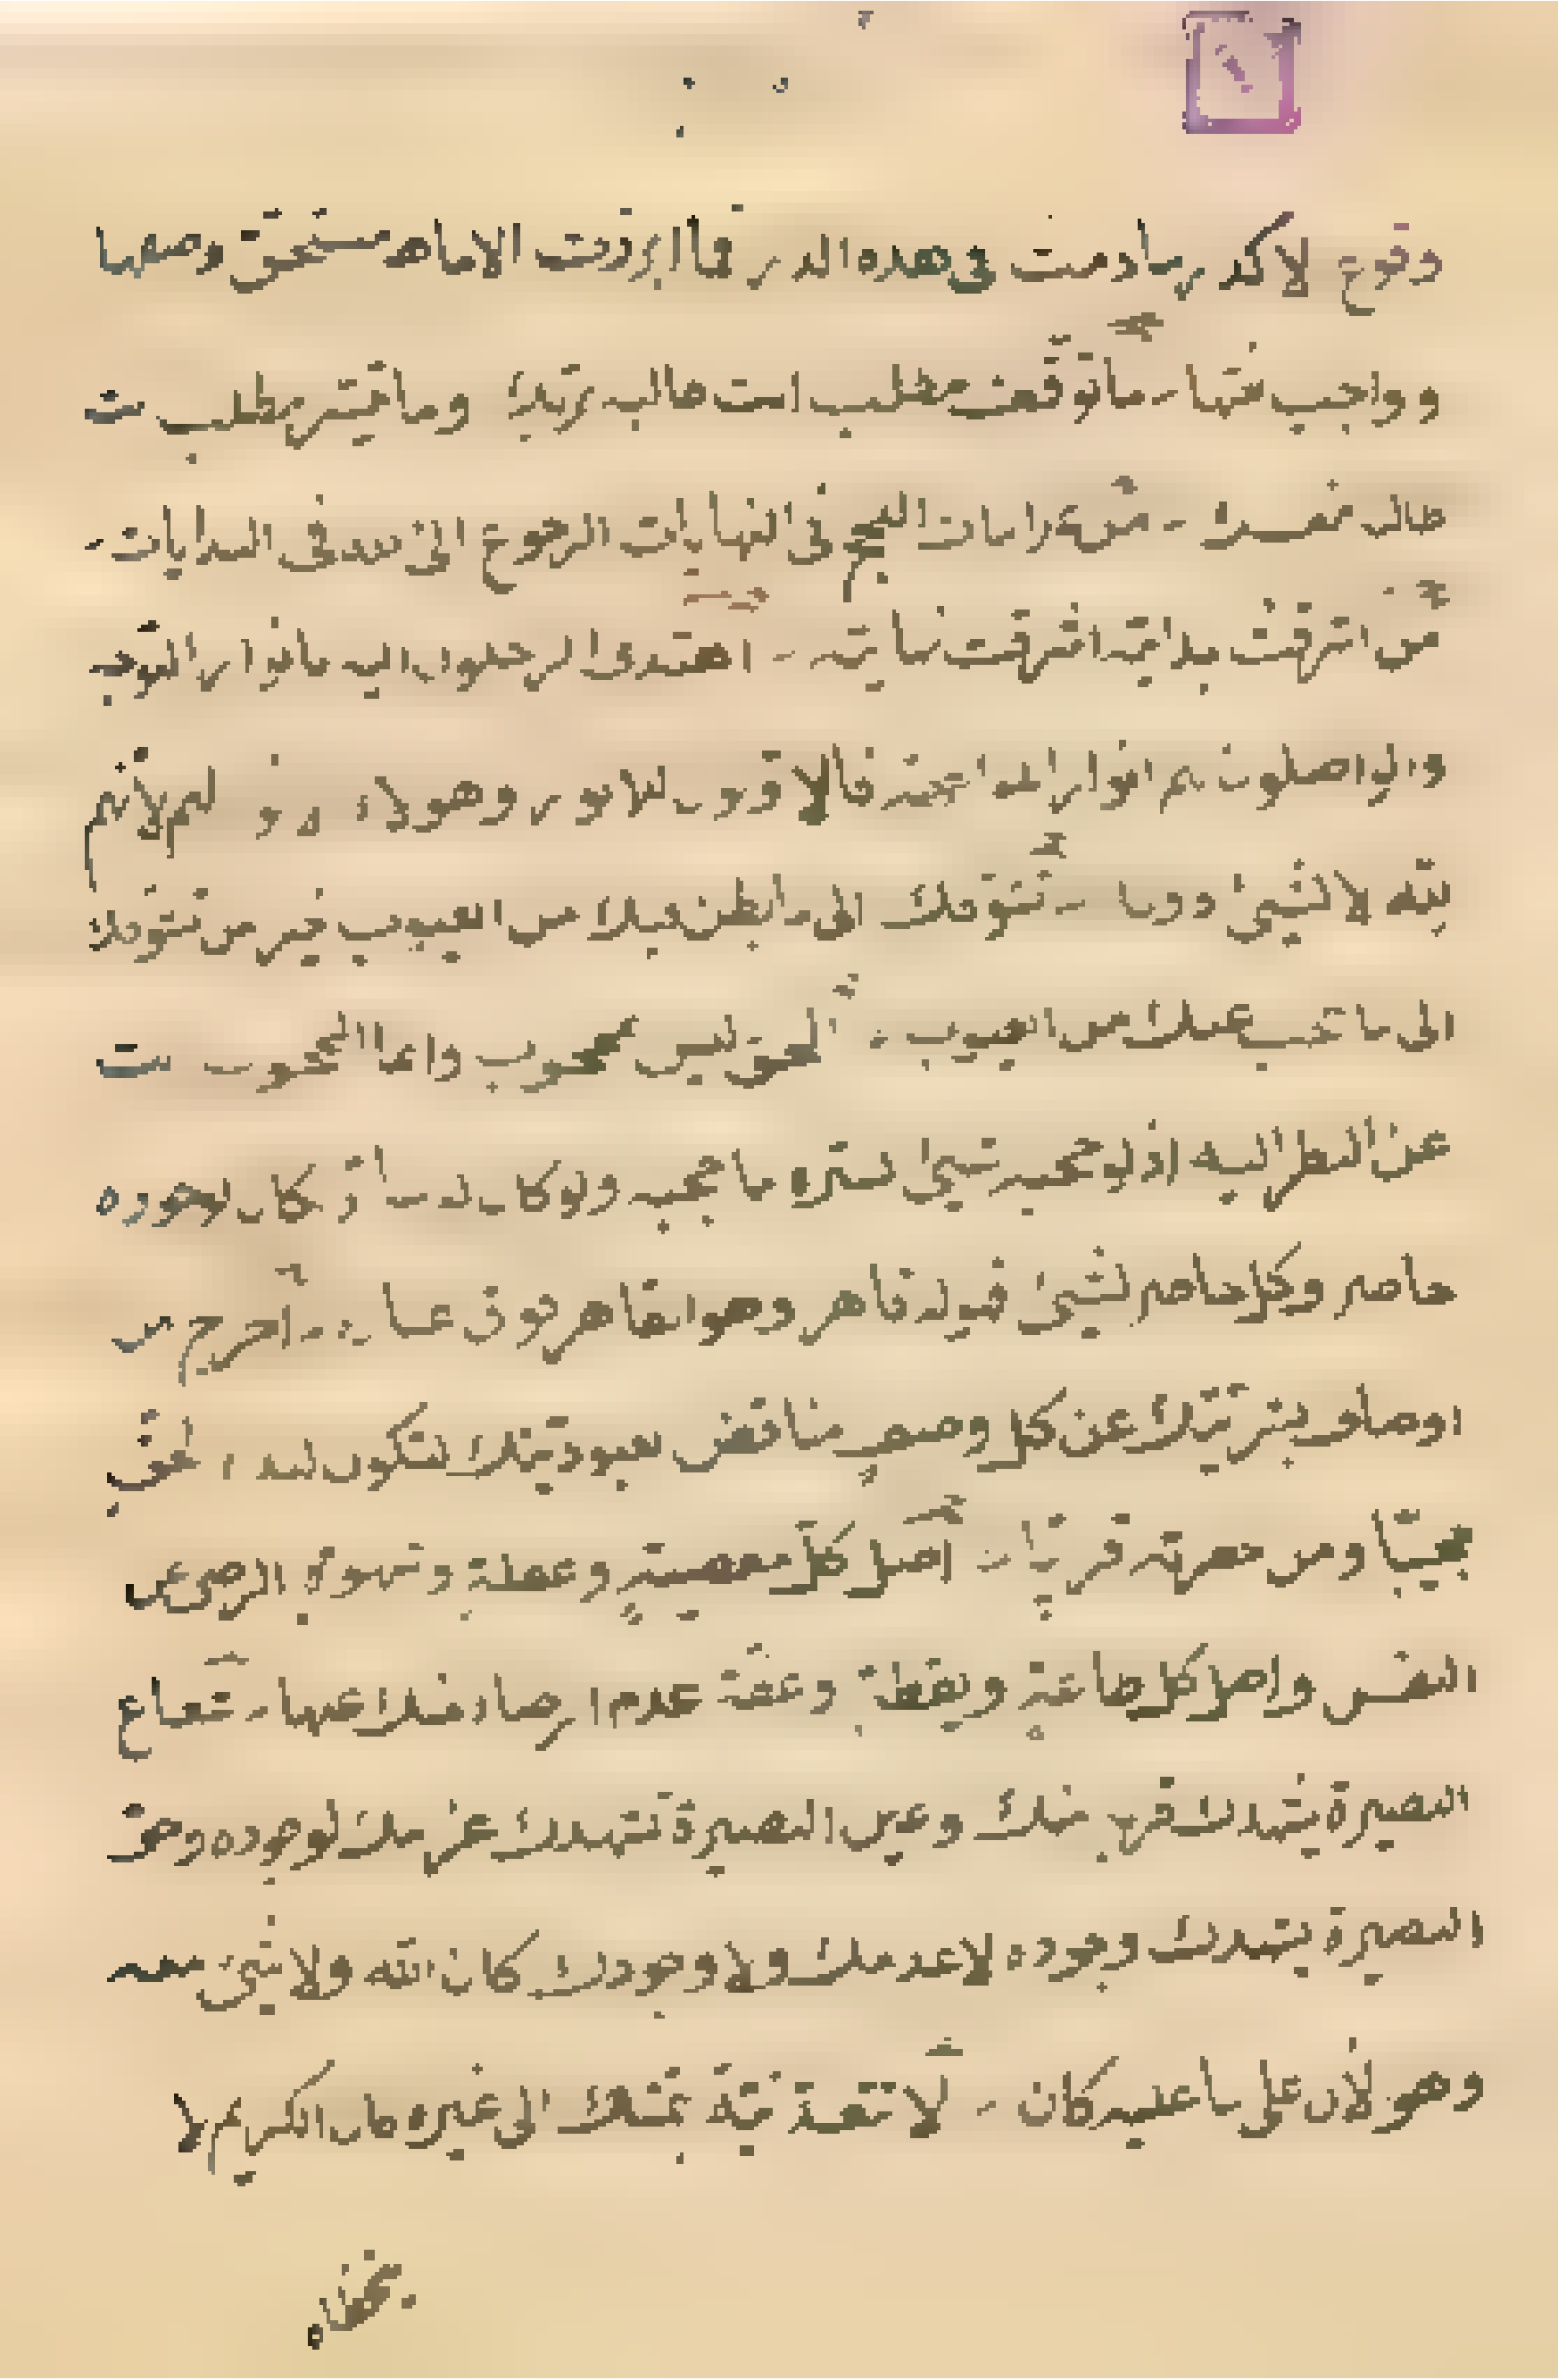 وقوع الاكدار ما دمت فى هذه الدار فانما ابرزت الا ما هو مستحق وصفها
وواجب نعتها ما توقف مطلب انت طالبه بربك وما تيسر مطلب انت
طالبه بنفسك من علامات النجح فى النهايات الرجوع الى الله فى البدايات
من اشرقت بدايته اشرقت نهايته اهتدى الراحلون اليه بانوار التوجه
والواصلون لهم انوار المواجهة فالاولون للانوار وهؤلاء الانوار لهم لأنهم
لله لا لشيئ دونه تشوّفك الى ما بطن فيك من العيوب خير من تشوّفك
الى ما حجب عنك من الغيوب الحق ليس بمحجوب وانما المحجوب انت
عن النظر اليه اذ لو حجبه شيئ لستره ما حجبه ولو كان له ساتر لكان لوجوده
حاصر وكل حاصر لشيئ فهو له قاهر وهو القاهر فوق عباده اخرج من
اوصاف بشريتك عن كل وصف مناقض لعبوديتك لتكون لنداء الحق
مجيبًا ومن حضرته قريبًا اصل كلّ معصيةٍ وغفلةٍ وشهوةٍ الرضى عن
النفس واصل كل طاعةٍ ويقظةٍ وعفّة عدم الرضا منك عنها شعاع
البصيرة يشهدك قربه منك وعين البصيرة تشهدك عدمك لوجوده وحق
البصيرة يشهدك وجوده لا عدمك ولا وجودك كان الله ولا شيئ معه
وهو الأن على ما عليه كان لا تتعدّ نيّة همّتك الى غيره فالكريم لا
تخطاه